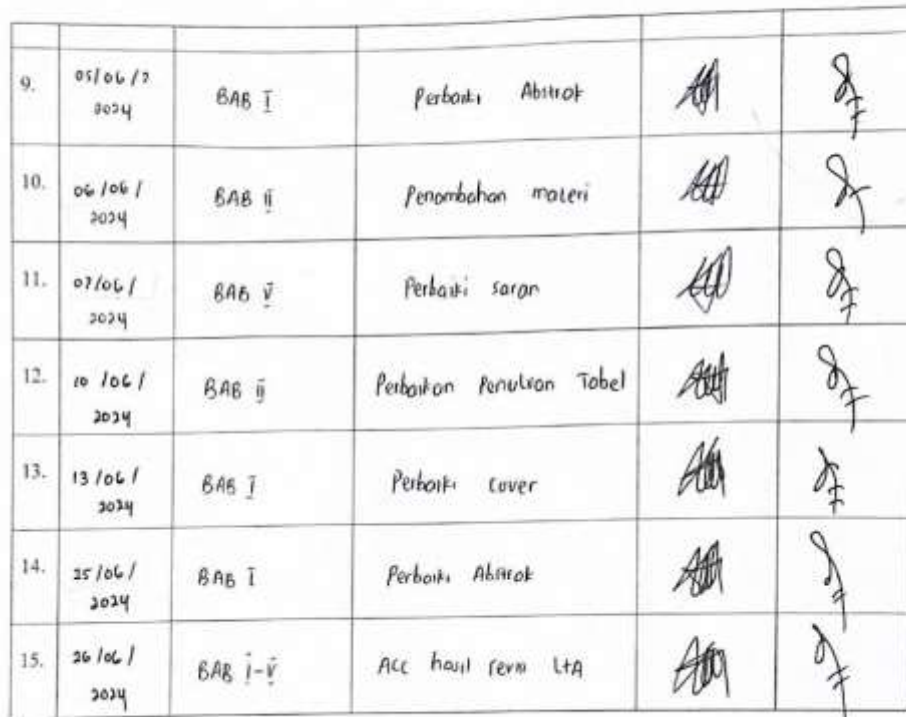 9. 05/06/2 2024 BAB I Perbaiki Abstrak
10. 06/06/ 2024 BAB II Penambahan materi
11. 07/06/ 2024 BAB V Perbaiki saran
12. 10/06/ 2024 BAB II Perbaikan Penulisan Tabel
13. 13/06/ 2024 BAB I Perbaiki cover
14. 25/06/ 2024 BAB I Perbaiki Abstrak
15. 26/06/ 2024 BAB I-V ACC hasil LTA